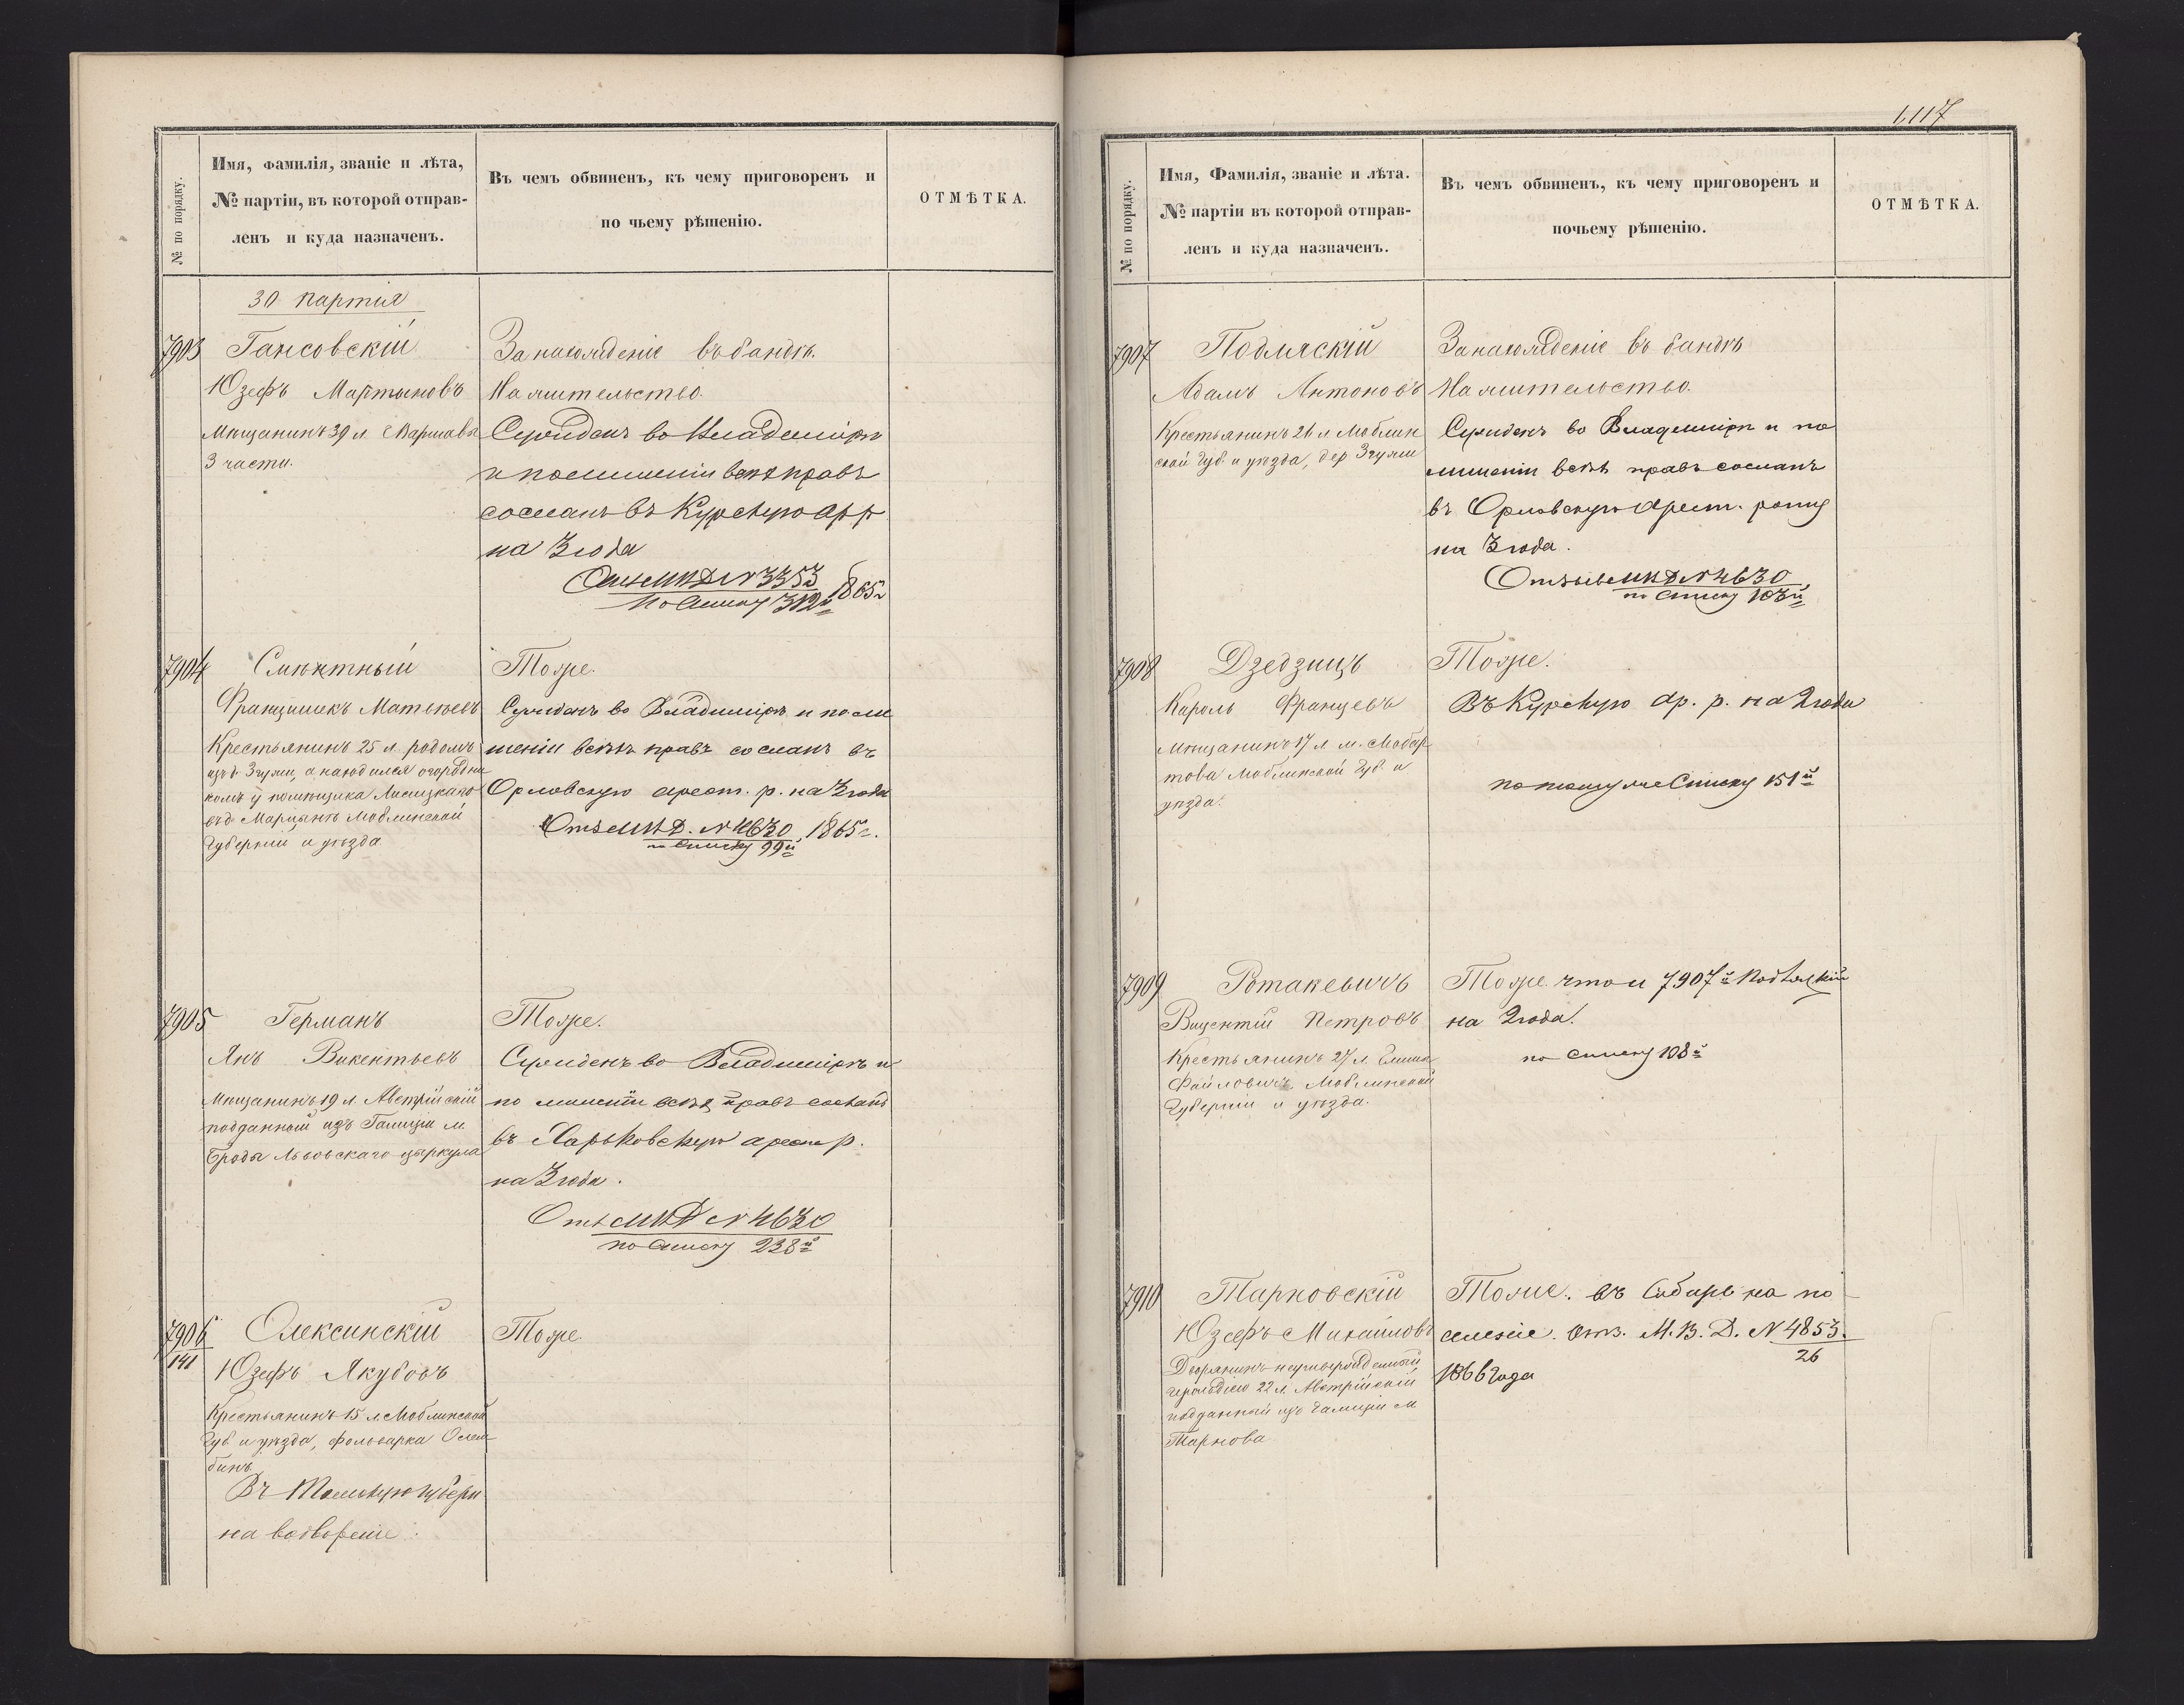 № по порядку.
Имя, фамилія, званіе и лѣта,
№ партіи, въ которой отправ-
ленъ и куда назначенъ.
Въ чемъ обвиненъ, къ чему приговоренъ и
по чьему рѣшенію.
ОТМѢТКА.
30 партія
7903
Гансовскій
Юзефъ Мартыновъ
Мѣщанинъ 39 л. г. Варшавы
3 части.
За нахожденіе въ бандѣ.
На жительство.
Сужденъ во Владимірѣ
и по лишеніи всѣхъ правъ
сосланъ въ Курскую ар р
на 3 года
Отз МВД № 3353 1865 г
по списку 312 й
7904
Францишекъ Матвѣевъ
Крестьянинъ 25 л. родомъ
изъ д. Згули, а находился огородни
комъ у помѣщика Лисицкаго
въ д. Марцынъ Люблинской
Губерніи и уѣзда
Тоже.
Сужденъ во Владимірѣ и по ли
шеніи всѣхъ правъ сосланъ въ
Орловскую арест. р. на 3 года
Отз МВД. № 4630, 1865 г.
по списку 99 й
7905
Германъ
Янъ Викентьевъ
Мѣщанинъ 19 л Австрійскій
подданный изъ Галиціи м.
Броды Львовскаго циркула
Тоже.
Сужденъ во Владимірѣ и
по лишеніи всѣхъ правъ сосланъ
въ Харьковскую арест р.
на 3 года.
Отз МВД № 4630
по списку 238 й
7906
141
Олексинскій
Юзефъ Якубовъ
Крестьянинъ 15 л. Люблинской
Губ и уѣзда, фольварка Олем-
бинъ.
Въ Томскую губерн.
на водвореніе.
Тоже.
1117
№ по порядку.
Имя, Фамилія, званіе и лѣта.
№ партіи въ которой отправ-
ленъ и куда назначенъ.
Въ чемъ обвиненъ, къ чему приговоренъ и
почьему рѣшенію.
ОТМѢТКА.
7907
Подляскій
Адамъ Антоновъ
Крестьянинъ 26 л Люблин
ской Губ. и уѣзда, дер Згули
За нахожденіе въ бандѣ
На жительство.
Сужденъ во Владимірѣ и по
лишеніи всѣхъ правъ сосланъ
въ Орловскую Арест. роту
на 3 года.
Отзывъ МВД № 4630,
по списку 103 й
7908
Дзедзицъ
Кароль Францевъ
Мѣщанинъ 17 л м. Любар
това Люблинской Губ. и
уѣзда.
Тоже.
Въ Курскую Ар. р. на 2 года
по тому же Списку 151 й
7909
Ротакевичъ
Вицентій Петровъ
Крестьянинъ 27 л.
Люблинской
Губерніи и уѣзда.
Тоже что и 7907 й Подляскій
на 2 года.
по списку 108 й
7910
Тарновскій
Юзефъ Михайловъ
Дворянинъ неутвержденный
герольдіею 22 л Австрійскій
подданный изъ Галиціи м
Тарнова
Тоже. въ Сибирь на по-
селеніе. Отз. М.В.Д. № 4853.
26
1866 года